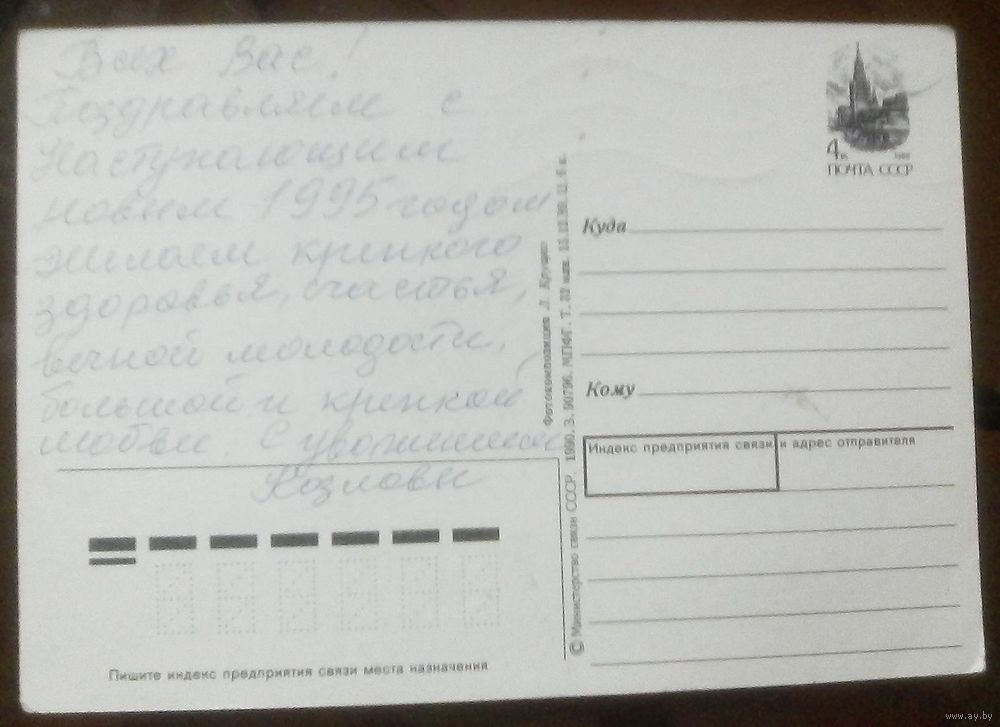 Всех Вас!
Поздравляем с
Наступающим
новым 1995 годом
жилаем крепкого
здоровья, счастья,
вечной молодости,
большой и крепкой
любви С уважением
Козловы
Пишите индекс предприятия связи места назначения
Фотокомпозиция Л. Круцко
© Министерство связи СССР. 1990. З. 90796. МПФГ. Т. 22 млн. 15.12.90. Ц. 6 к.
4к
ПОЧТА СССР
Куда
Кому
Индекс предприятия связи и адрес отправителя
www.ay.by